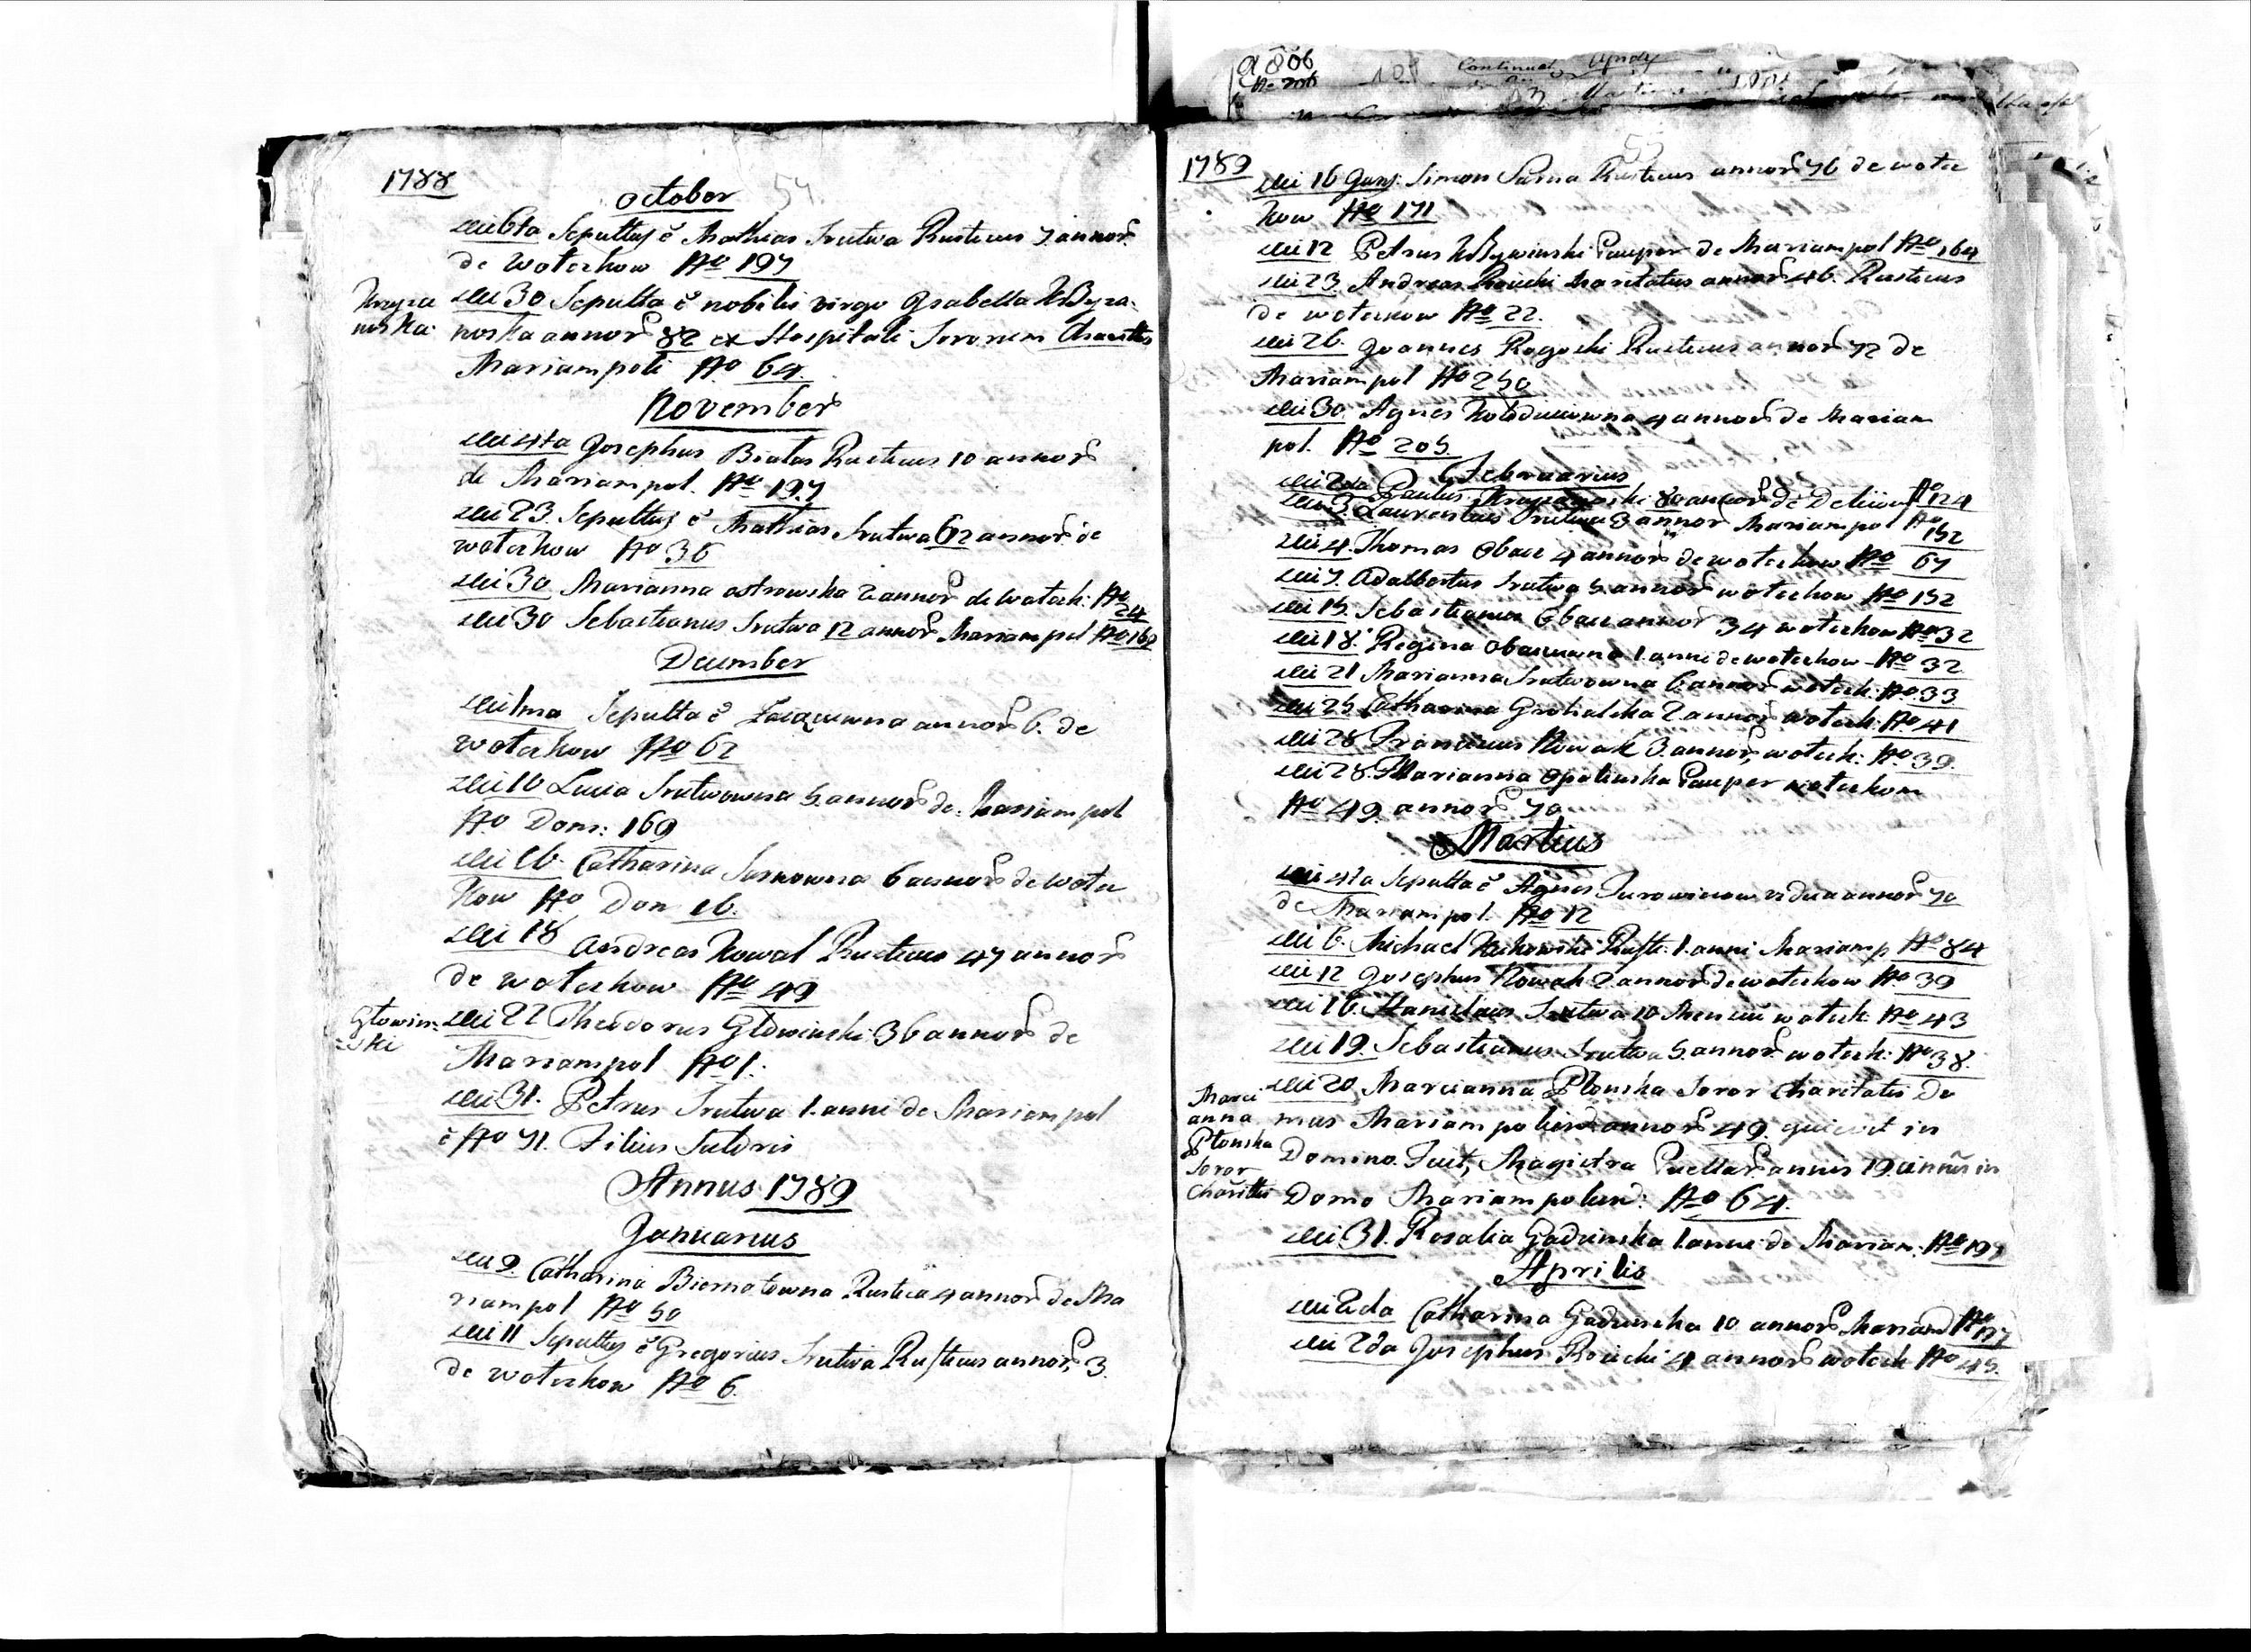 1788
October 54
die 6ta Sepultus ẽ Mathias Srutwa Rusticus 7 annor.
de Wotczkow No 197
Krzyza
noska
die 30 Sepulta ẽ nobilis virgo Isabella Krzyza-
noska annor 82 ex Hospitali Sororum Charittis
Mariampoli No 64.
November
die 4ta Josephus Bialas Rusticus 10 annor
de Mariampol. No 197
die 23. Sepultus ẽ Mathias Srutwa 62 annor de
wotczkow No 36
die 30 Marianna ostrowska 2 annor de wotczk: No 24
die 30 Sebastianus Srutwa 12 annor Mariampol No 169
December
die 1ma Sepulta ẽ annor 6. de
wotczkow No 62
die 10 Lucia Srutwowna 5. annor de Mariampol
No Dom: 169
die 16. Catharina Sarnowna 6 annor de wotcz
kow No Dom 16.
die 18 Andreas Kowal Rusticus 47 annor
de wotczkow No 49
Glowin:
=ski
die 22 Theodorus Glowinski 36 annor de
Mariampol No 1.
die 31. Petrus Srutwa 1. anni de Mariampol
ẽ No 71. Filius Sutoris
Annus 1789
Januarius
die 9. Catharina Biernatowna Rustica 4 annor de Ma
riampol No 50
die 11 Sepultus ẽ Gregorius Srutwa Rusticus annor, 3.
de wotczkow No 6.
1789
55
die 16 Janj: Simon Sarna Rusticus annor 76 de wotcz
kow No 171
die 12 Petrus Pauper de Mariampol No 164
die 23. Andreas Maritatus annor 46. Rusticus
de wotczkow No 22.
die 26. Joannes Rogoski Rusticus annor 72 de
Mariampol No 250
die 30. Agnes 4 annor de Mariam
pol. No 205.
Februarius
die 2da Paulus 80 annor de No 124
die 3. Laurentius Srutwa 3 annor Mariampol No 152
die 4. Thomas Obacz 4 annor de wotczkow No 67
die 7. Adalbertus Srutwa 5. annor wotczkow No 152
die 15. Sebastianus Obacz annor 34 wotczkow No 32
die 18. Regina Obaczowna 1. anni de wotczkow No 32
die 21 Marianna Srutwowna 6 annor wotczk: No 33
die 25 Catharina Grohalska 2 annor wotczk: No 41
die 28 Franciscus Nowak 3. annor, wotczk: No 39.
die 28. Marianna Opolinska Pauper wotczkow
No 49. annor 70
Martius
die 4ta Sepulta ẽ Agnes vidua annor 70
de Mariampol. No 12
die 6. Michael Rusti: 1. anni Mariamp No 84
die 12 Josephus Nowak 2 annor de wotczkow No 39
die 16. Stanislaus Srutwa 10 Mensiũ wotczk: No 43
die 19. Sebastianus Srutwa 5. annor wotczk: No 38.
Marci
anna
Plonska
Soror
Charittis
die 20 Marcianna Plonska Soror Charitatis Do
mus Mariampoliens annor 49. quievit in
Domino. Fuit, Magistra Puellar annis 19. in
Domo Mariampoliens: No 64.
die 31. Rosalia Gadzinska 1. anni de Mariam: No 197
Aprilis
die 2da Catharina Gadzinska 10 annor Mariam No 197
die 2da Josephus 4 annor wotczk No 45.